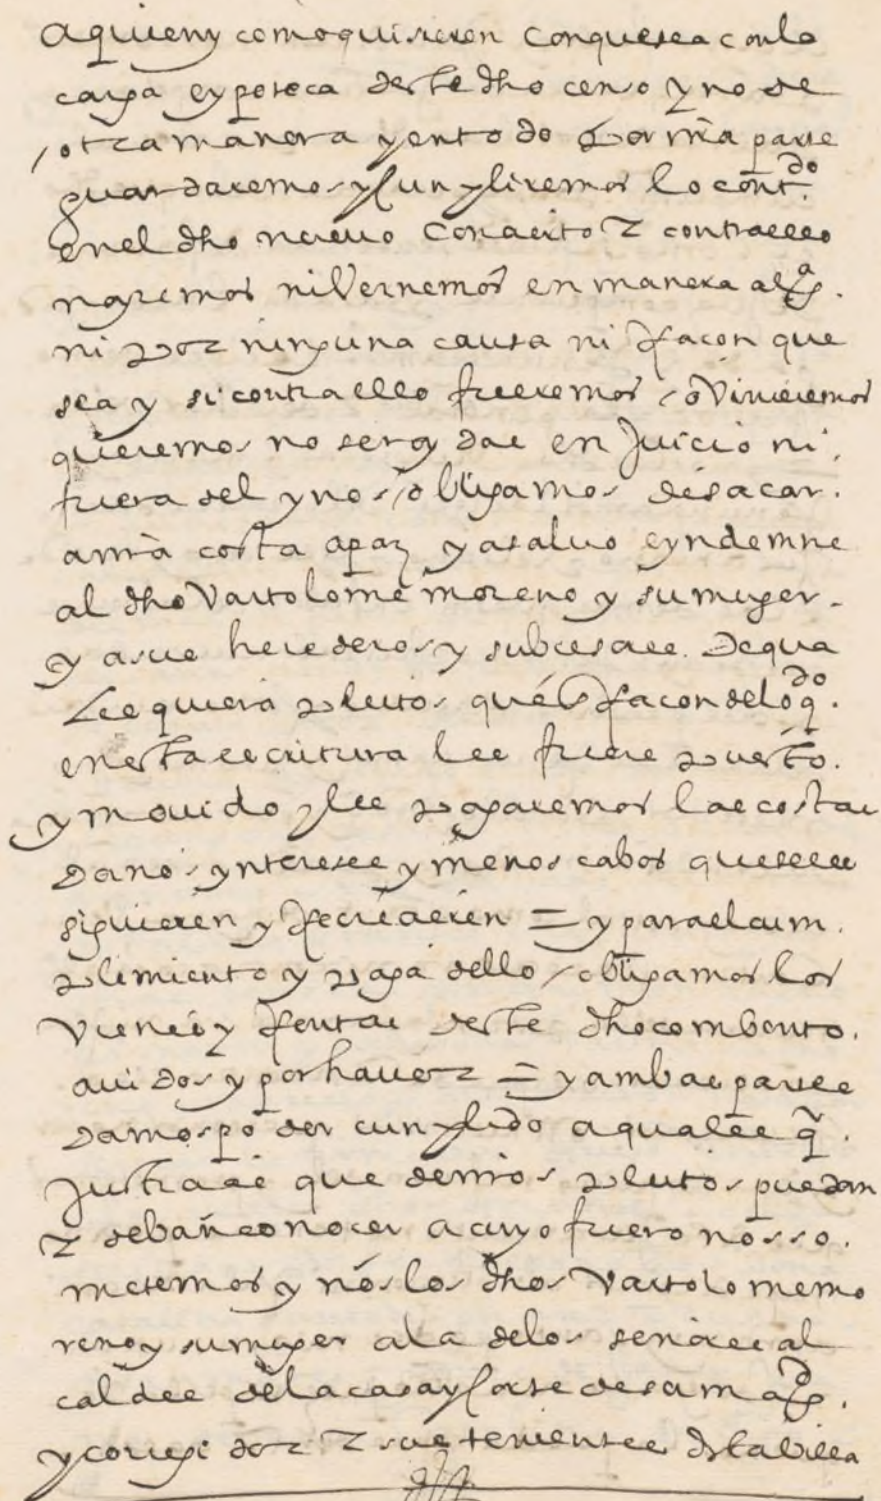 a quien y como quisieren con que sea con la
carga e ypoteca deste dho censo y no de
otra manera y en todo por nra parte
guardaremos y cunpliremos lo contdo
en el dho nuevo conacito e contra ello
no yremos ni vernemos en manera alga.
ni por ninguna causa ni rraçon que
sea y si contra ello fueremos o vinieremos
queremos no ser oydas en juicio ni
fuera del y nos obligamos de sacar.
a nra costa a paz y a salvo e yndemne
al dho Vartolome moreno y su muger.
y a sus herederos y subcesores. De qua
les quiera pleitos que en rraçon de lo qdo.
en esta escritura les fuere puesto.
y movido y les pagaremos las costas
Daños yntereses y menos cabos que se les
siguieren y rrecrecieren = y para el cum
plimiento y paga dello obligamos los
vienes y rrentas deste dho combento.
avidos y por haver = y ambas partes
Damos poder cunplido a quales q.
Justicias que de nros pleitos puedan
e deban conocer a cuyo fuero nos so.
metemos y nos los dhos Vartolome mo
reno y su muger a la de los señores al
caldes de la casa y corte de su magd.
y corregidor e sus tenientes desta villa